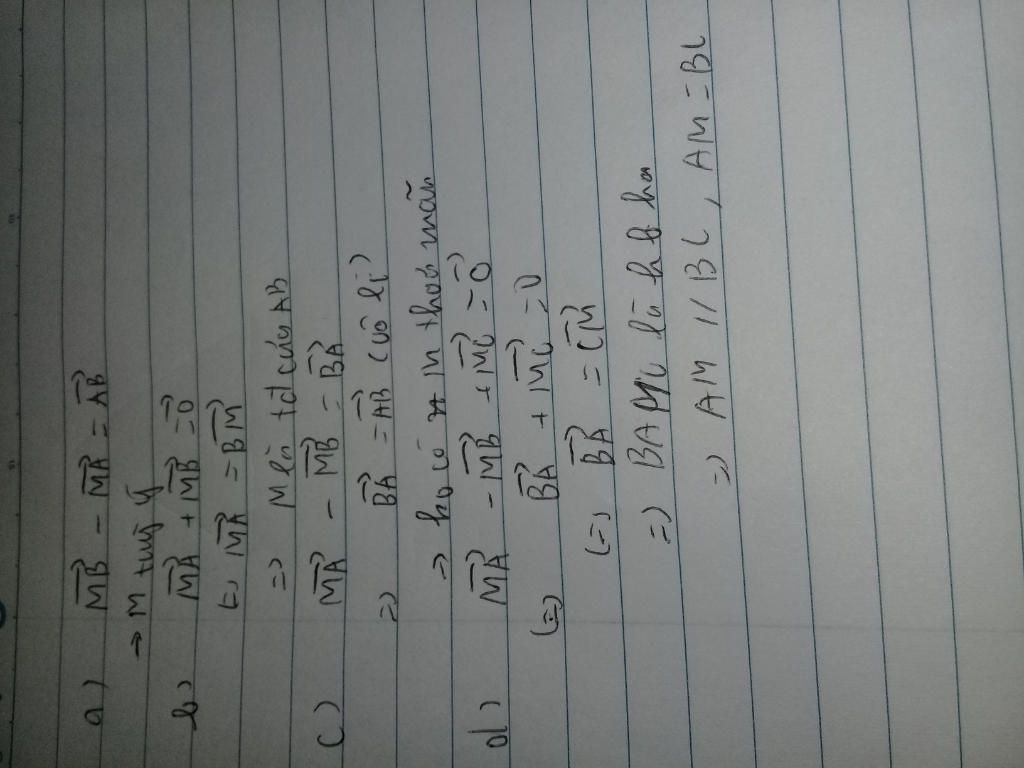 a) MB⃗ - MA⃗ = AB⃗
→ M tuỳ ý
b) MA⃗ + MB⃗ = 0⃗
(=) MA⃗ = BM⃗
=) M là tđ của AB
c) MA⃗ - MB⃗ = BA⃗
=) BA⃗ = AB⃗ (vô lí)
=) ko có M thoả mãn
d) MA⃗ - MB⃗ + MC⃗ = 0⃗
(=) BA⃗ + MC⃗ = 0
(=) BA⃗ = CM⃗
=) BAMC là hbh
=) AM // BC, AM = BC